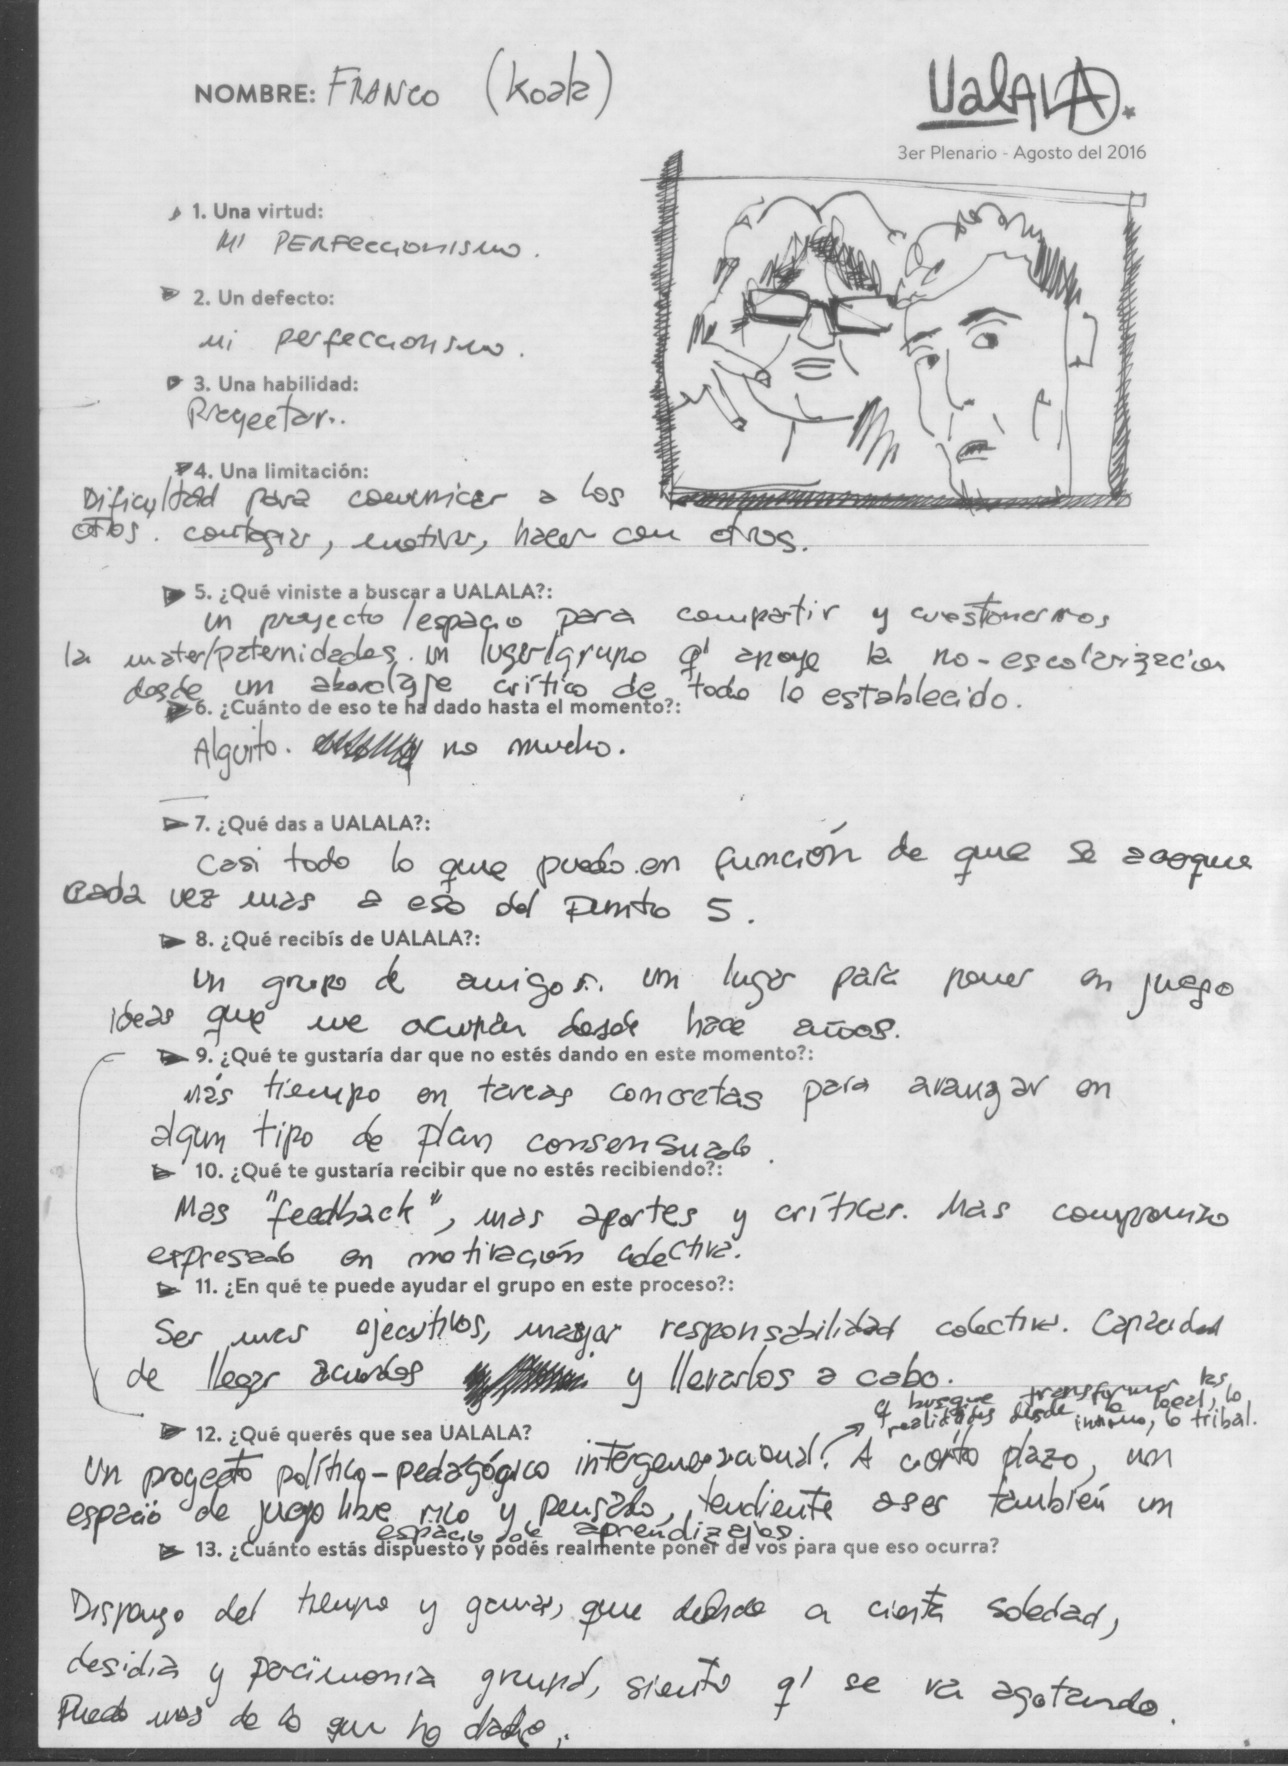 NOMBRE: FRANCO (koala)
UalALA.
3er Plenario - Agosto del 2016
1. Una virtud:
MI PERFECCIONISMO.
2. Un defecto:
mi perfeccionismo.
3. Una habilidad:
Proyectar..
4. Una limitación:
Dificultad para comunicar a los
otros. contagiar, motivar, hacer con otros.
5. ¿Qué viniste a buscar a UALALA?:
un proyecto/espacio para compartir y cuestionarnos
la mater/paternidades. un lugar/grupo q' apoye la no-escolarización
desde un abordaje crítico de todo lo establecido.
6. ¿Cuánto de eso te ha dado hasta el momento?:
Alguito. no mucho.
7. ¿Qué das a UALALA?:
Casi todo lo que puedo en función de que se acerque
cada vez mas a eso del punto 5.
8. ¿Qué recibís de UALALA?:
Un grupo de amigos. un lugar para poner en juego
ideas que me ocupan desde hace años.
9. ¿Qué te gustaría dar que no estés dando en este momento?:
Más tiempo en tareas concretas para avanzar en
algun tipo de plan consensuado.
10. ¿Qué te gustaría recibir que no estés recibiendo?:
Mas "feedback", mas aportes y críticas. Mas compromiso
expresado en motivación colectiva.
11. ¿En qué te puede ayudar el grupo en este proceso?:
Ser mas ejecutivos, mayor responsabilidad colectiva. Capacidad
de llegar acuerdos y llevarlos a cabo.
q' busque transformar las
realidades desde lo local, lo
íntimo, lo tribal.
12. ¿Qué querés que sea UALALA?
Un proyecto político-pedagógico intergeneracional. A corto plazo, un
espacio de juego libre rico y pensado, tendiente a ser también un
espacio de aprendizajes.
13. ¿Cuánto estás dispuesto y podés realmente poner de vos para que eso ocurra?
Dispongo del tiempo y ganas, que debido a cierta soledad,
desidia y parcimonia grupal, siento q' se va agotando.
Puedo mas de lo que he dado.